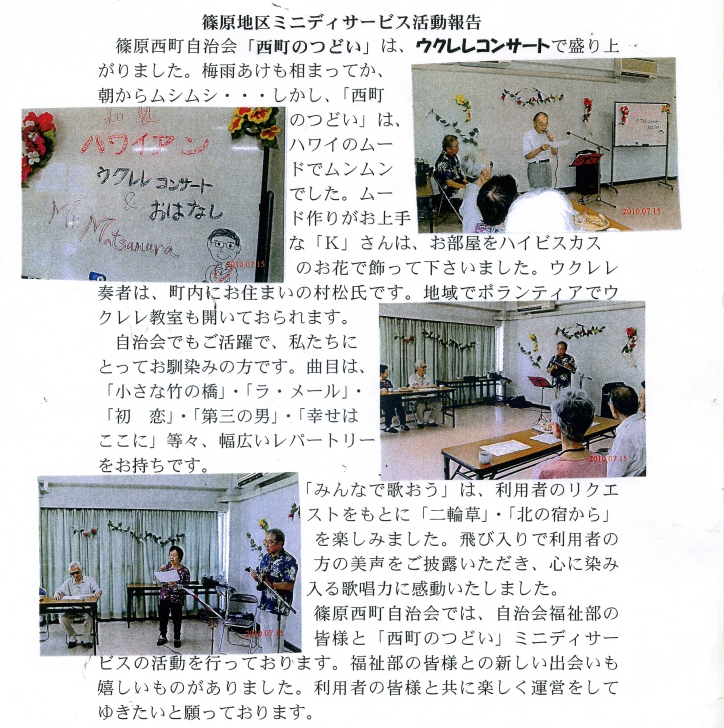 篠原地区ミニディサービス活動報告
篠原西町自治会「西町のつどい」は、ウクレレコンサートで盛り上
がりました。梅雨あけも相まってか、
朝からムシムシ・・・しかし、「西町
のつどい」は、
ハワイのムー
ドでムンムン
でした。ムー
ド作りがお上手
な「K」さんは、お部屋をハイビスカス
のお花で飾って下さいました。ウクレレ
奏者は、町内にお住まいの村松氏です。地域でボランティアでウ
クレレ教室も開いておられます。
自治会でもご活躍で、私たちに
とってお馴染みの方です。曲目は、
「小さな竹の橋」・「ラ・メール」・
「初 恋」・「第三の男」・「幸せは
ここに」等々、幅広いレパートリー
をお持ちです。
「みんなで歌おう」は、利用者のリクエ
ストをもとに「二輪草」・「北の宿から」
を楽しみました。飛び入りで利用者の
方の美声をご披露いただき、心に染み
入る歌唱力に感動いたしました。
篠原西町自治会では、自治会福祉部の
皆様と「西町のつどい」ミニディサー
ビスの活動を行っております。福祉部の皆様との新しい出会いも
嬉しいものがありました。利用者の皆様と共に楽しく運営をして
ゆきたいと願っております。
ハワイアン
ウクレレ コンサート
&
おはなし
Mr. Matsumura
2010.07.15
2010.07.15
2010.07.15
2010.07.15